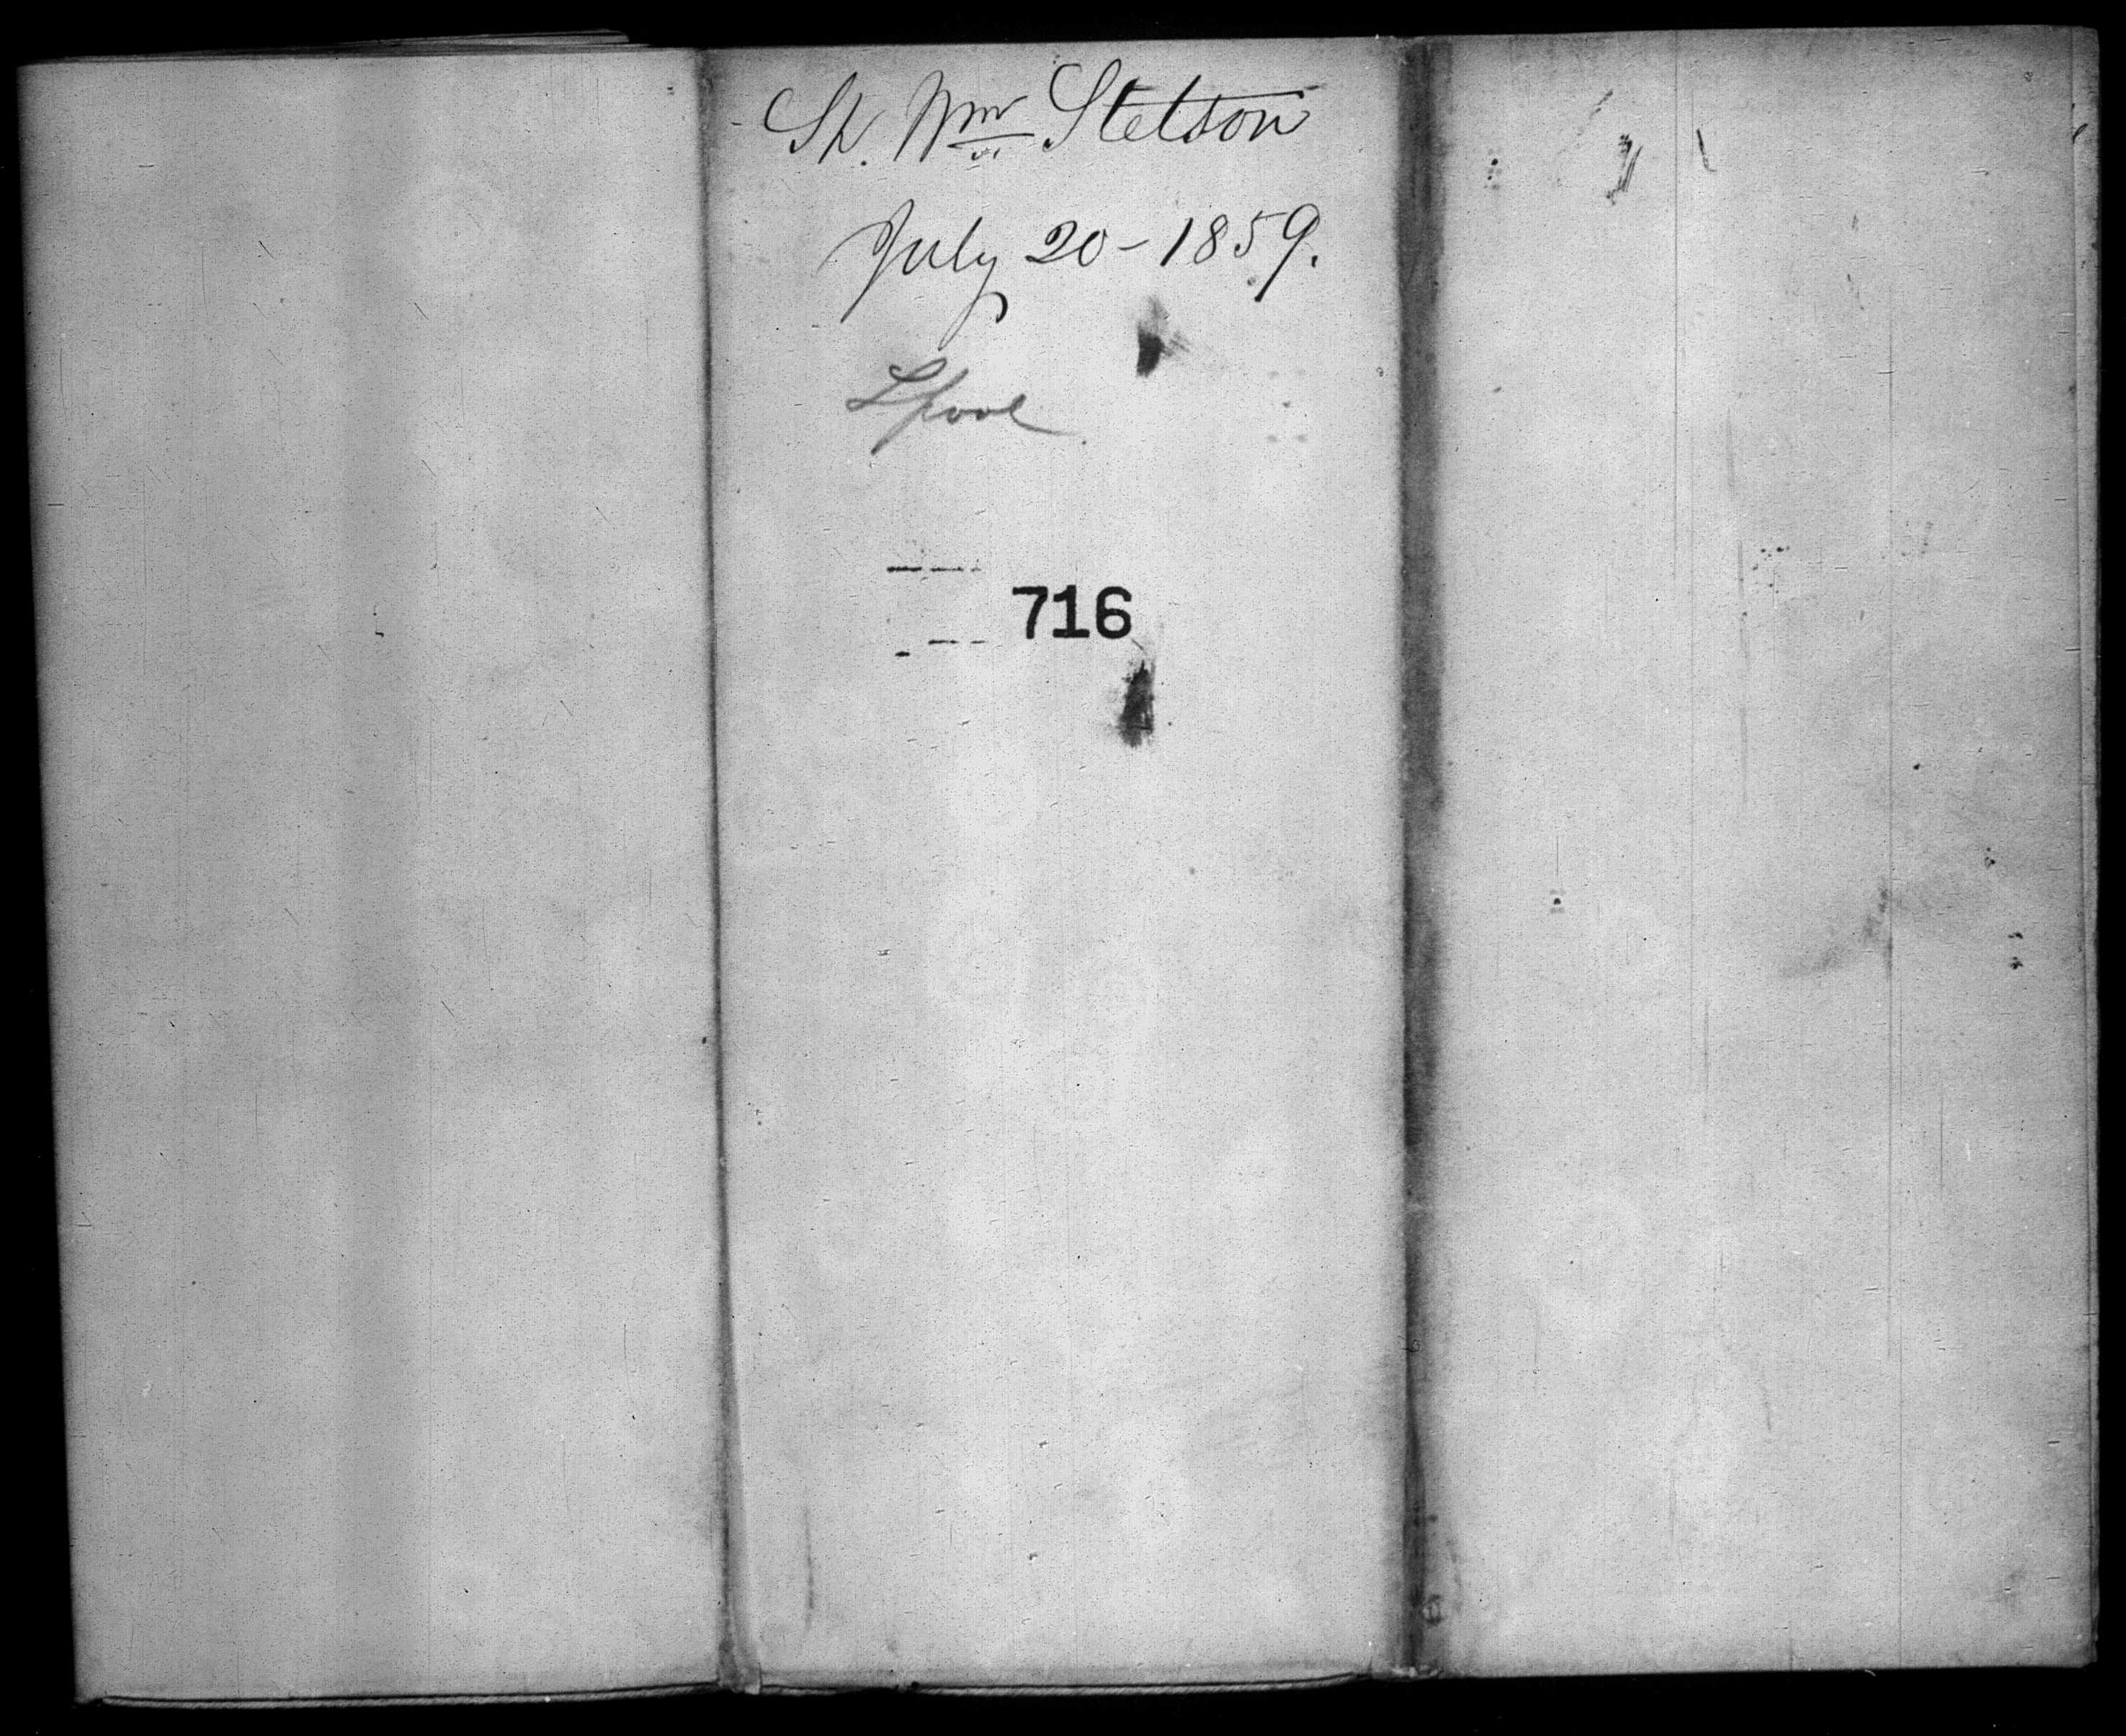 Sh. Wm Stetson
July 20-1859.
Lpool
716